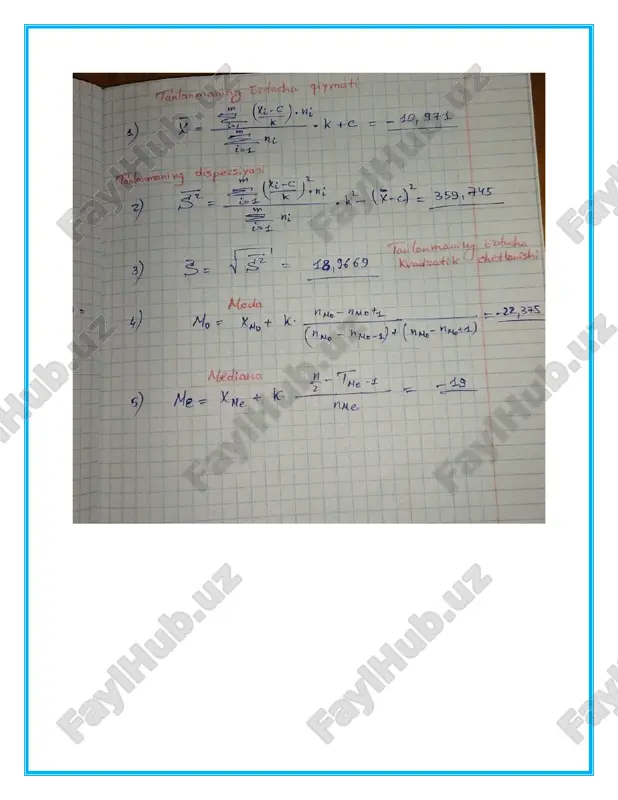 Tanlanmaning o'rtacha qiymati
1) X̄ = Σ(i=1, m) ((xi - C)/k) · ni / Σ(i=1, m) ni · k + C = - 10,971
Tanlanmaning dispersiyasi
2) S̄² = Σ(i=1, m) ((xi - C)/k)² · ni / Σ(i=1, m) ni · k² - (x̄ - C)² = 359,745
Tanlanmaning o'rtacha
kvadratik chetlanishi
3) S = √S̄² = 18,9669
Moda
4) M₀ = X_M₀ + k · (n_M₀ - n_M₀+1) / ((n_M₀ - n_M₀-1) + (n_M₀ - n_M₀+1)) = -22,375
Mediana
5) Me = X_Me + k · (n/2 - T_Me-1) / n_Me = -19
FaylHub.uz
FaylHub.uz
FaylHub.uz
FaylHub.uz
FaylHub.uz
FaylHub.uz
FaylHub.uz
FaylHub.uz